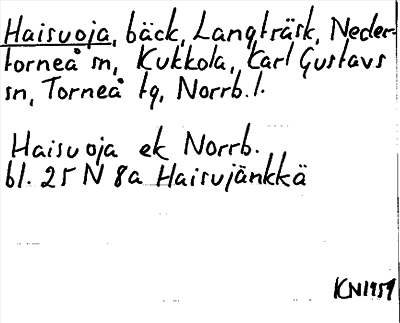 Haisuoja, bäck, Langträsk, Neder-
torneå sn, Kukkola, Karl Gustavs
sn, Torneå tg, Norrb.l.
Haisuoja ek Norrb.
bl. 25 N 8a Haisujänkkä
KN1959